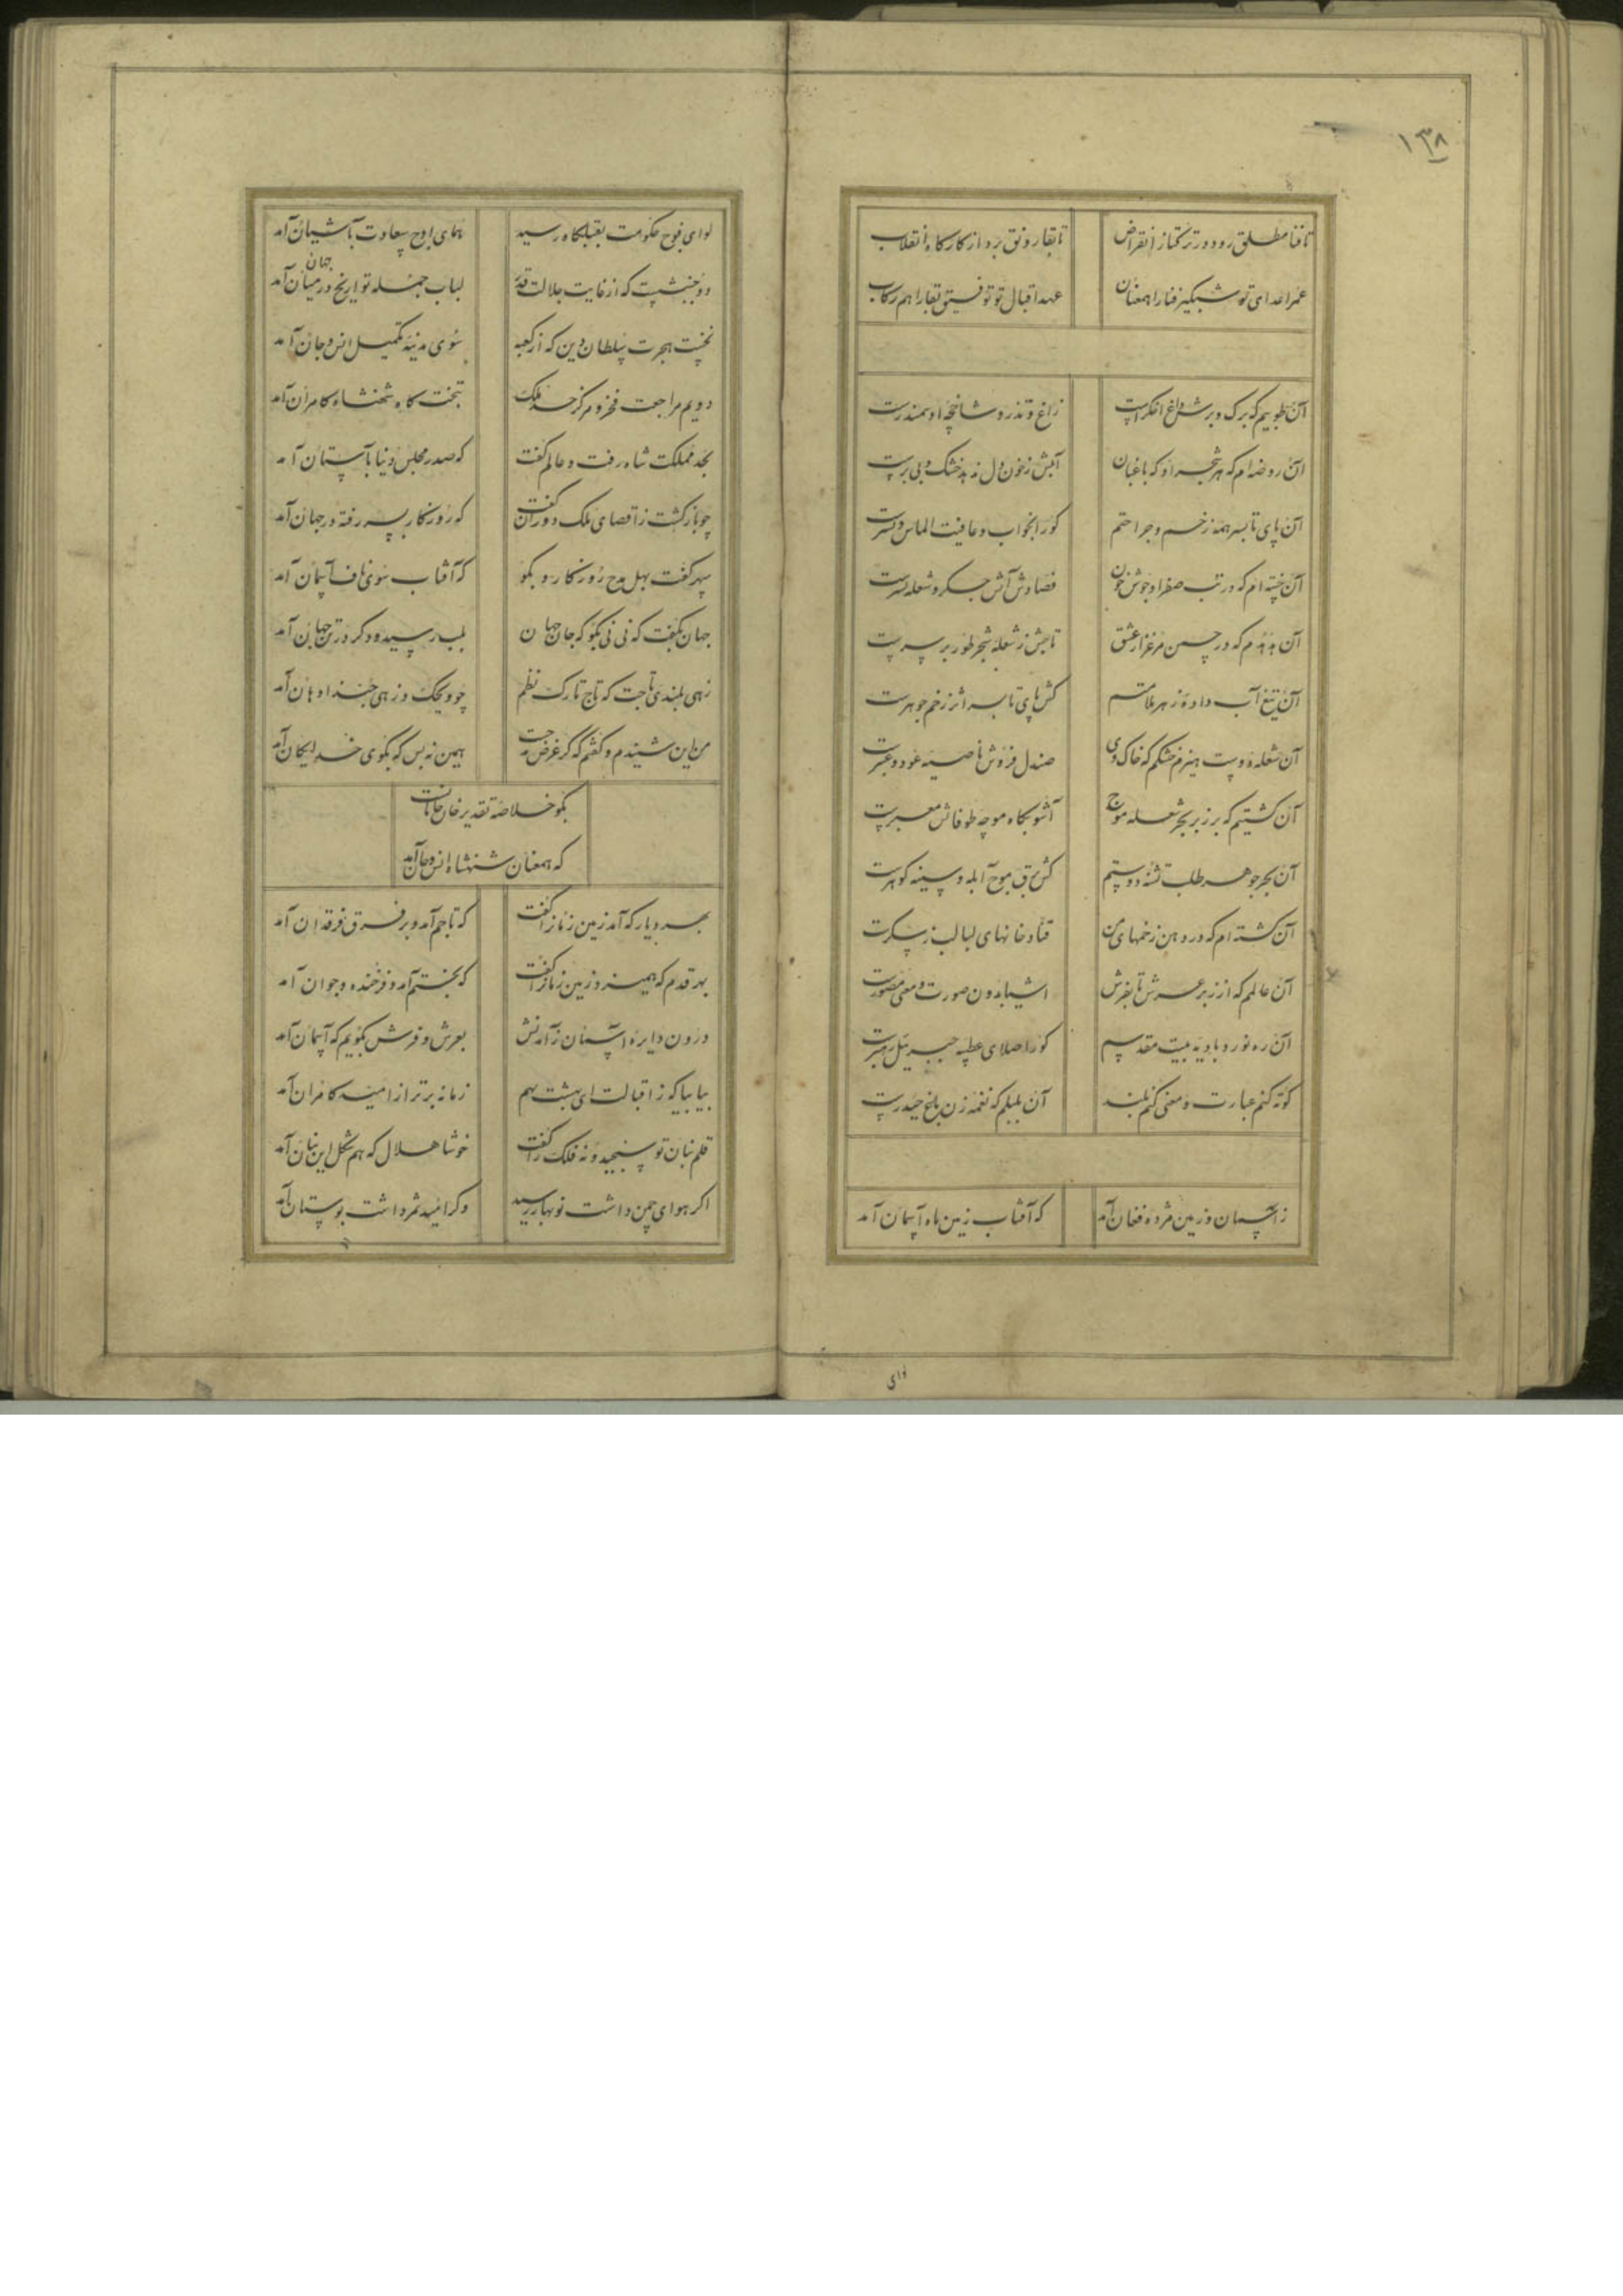 ۱۳۸
تا فنا مطلق رود در ترکتاز انقراض
تا بقا رونق برد از کارگاه انقلاب
عمر اعدای تو شبگیر فنا را همعنان
عهد اقبال تو توفیق بقا را هم رکاب
آن طوبیم که برک و برش داغ اخکرست
زاغ و تذرو شانچه او سمندرست
آن روضه ام که هر شجر او که باغبان
آبش ز خون دل ندهد خشک و بی برست
آن پای تا بسر همه زخم و جراحتم
کورا بخواب و عافیت الماس بسترست
آن خسته ام که در تب صفرا و جوش خون
فصادش آتش جگر و شعله نشترست
آن هدهدم که در چمن مرغزار عشق
تاجش ز شعله شجر طور بر سرست
آن تیغ آب داده زهر ملامتم
کش پای تا بسر اثر زخم جوهرست
آن شعله دوست هیزم خشکم که خاک وی
صندل فروش ناصیه عود و عنبرست
آن کشتیم که بر زبر بحر شعله موج
آشوبگاه موجه طوفانش معبرست
آن بحر جوهر طلب تشنه دوستم
کش برق موج آبله و سینه گوهرست
آن کشته ام که در دهن زخمهای من
قنادخانهای لبالب ز شکرست
آن عالمم که از زبر عرش تا بفرش
اشیا بدون صورت و معنی مصورست
آن ره نورد بادیه بیت مقدسم
کورا صلای عطسه جبریل رهبرست
کوته کنم عبارت و معنی کنم بلند
آن بلبلم که نغمه زن باغ حیدرست
ز آسمان و زمین مژده فغان آمد
که آفتاب زمین ماه آسمان آمد
لوای
لوای فوج حکومت بقبلگاه رسید
همای اوج سعادت بآشیان آمد
دو جنبشست که از غایت جلالت قدر
جهان
لباب جمله تواریخ در میان آمد
نخست هجرت سلطان دین که از کعبه
سوی مدینه تکمیل انس و جان آمد
دویم مراجعت فخر و مرکز ملک
بتخت گاه شهنشاه کامران آمد
بحد مملکت شاه رفت و عالم گفت
که صدر مجلس دنیا بآستان آمد
چو باز گشت ز اقصای ملک دوران گفت
که روزگار بسر رفته در جهان آمد
سپهر گفت بهل مدح روزگار و بگو
که آفتاب سوی ناف آسمان آمد
جهان بگفت که نی نی بگو که جان جهان
بلب رسیده دگر در تن جهان آمد
زهی بلندی تاجت که تاج تارک نظم
من این شنیدم و گفتم که گر غرض مدحت
همین نه بس که بگوی خدایگان آمد
بگو خلاصه تقدیر خان خانانست
که همعنان شهنشاه انس و جان آمد
بهر دیار که آمد زمین زمانرا گفت
که تاجم آمد و بر فرق فرقدان آمد
بهر قدم که همیزد زمین زمانرا گفت
که بختم آمد و فرخنده و جوان آمد
درون دایره آسمان ز آمدنش
بعرش و فرش بگویم که آسمان آمد
بیا بیا که ز اقبالت ای بهشت بهم
زمانه برتر از امید کامران آمد
قلم بنان تو سنجید و نه فلک را گفت
خوشا هلال که هم شکل این بنان آمد
اگر هوای چمن داشت نوبهار رسید
وگر امید ثمر داشت بوستان آمد